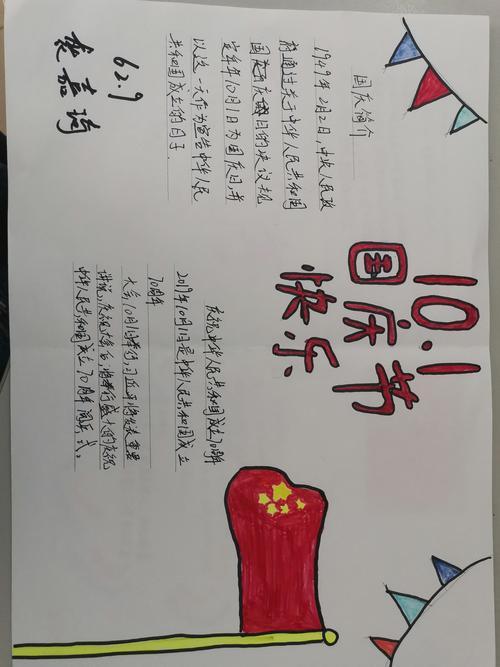 10.1
国庆节
快乐
国庆简介
1949年2月2日，中央人民政
府通过关于中华人民共和国
国庆日的决议规
定每年10月1日为国庆日，并
以这一天作为宣告中华人民
共和国成立的日子.
62.9
庆祝中华人民共和国成立70周年
2019年10月1日是中华人民共和国成立
70周年
大会10月1日举行，习近平将发表重要
讲话，庆祝大会后，将举行盛大的庆祝
中华人民共和国成立70周年阅兵式。